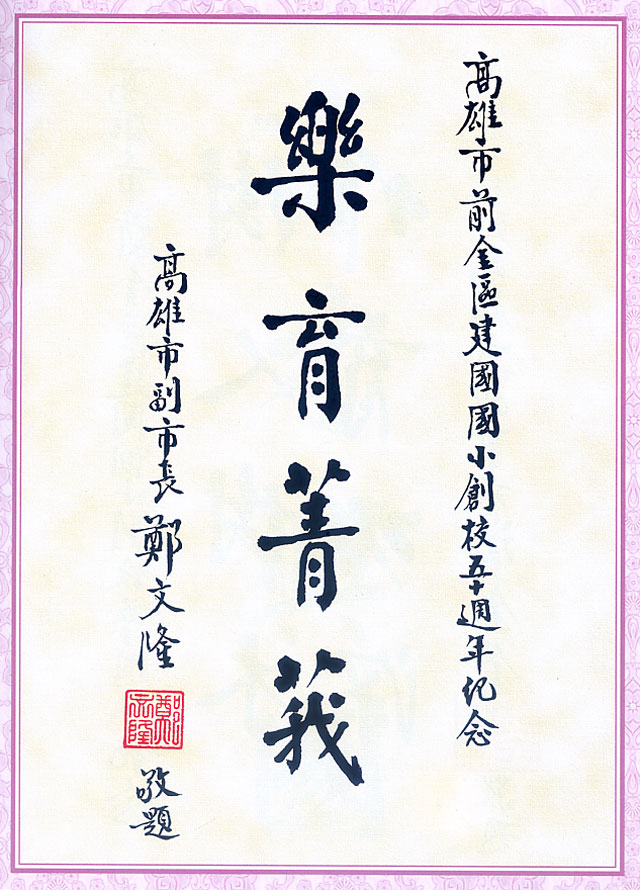 高雄市前金區建國國小創校五十週年紀念
樂育菁莪
高雄市副市長鄭文隆
鄭文隆
敬題